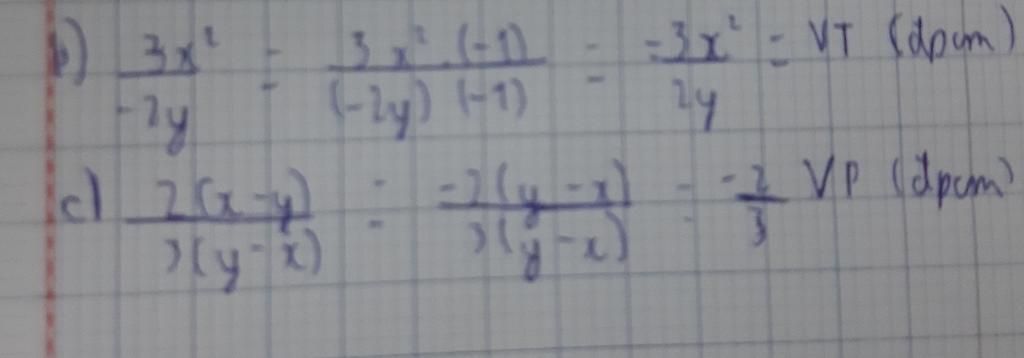 b) 3x²/-2y = 3x².(-1)/(-2y)(-1) = -3x²/2y = VT (dpcm)
c) 2(x-y)/3(y-x) = -2(y-x)/3(y-x) = -2/3 VP (dpcm)